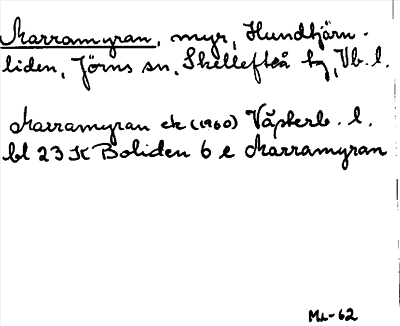 Marramyran, myr, Hundtjärn-
liden, Jörns sn, Skellefteå kg, Vb. l.
Marramyran ek (1960) Västerb. l.
bl 23 K Boliden 6 e Marramyran
ML-62